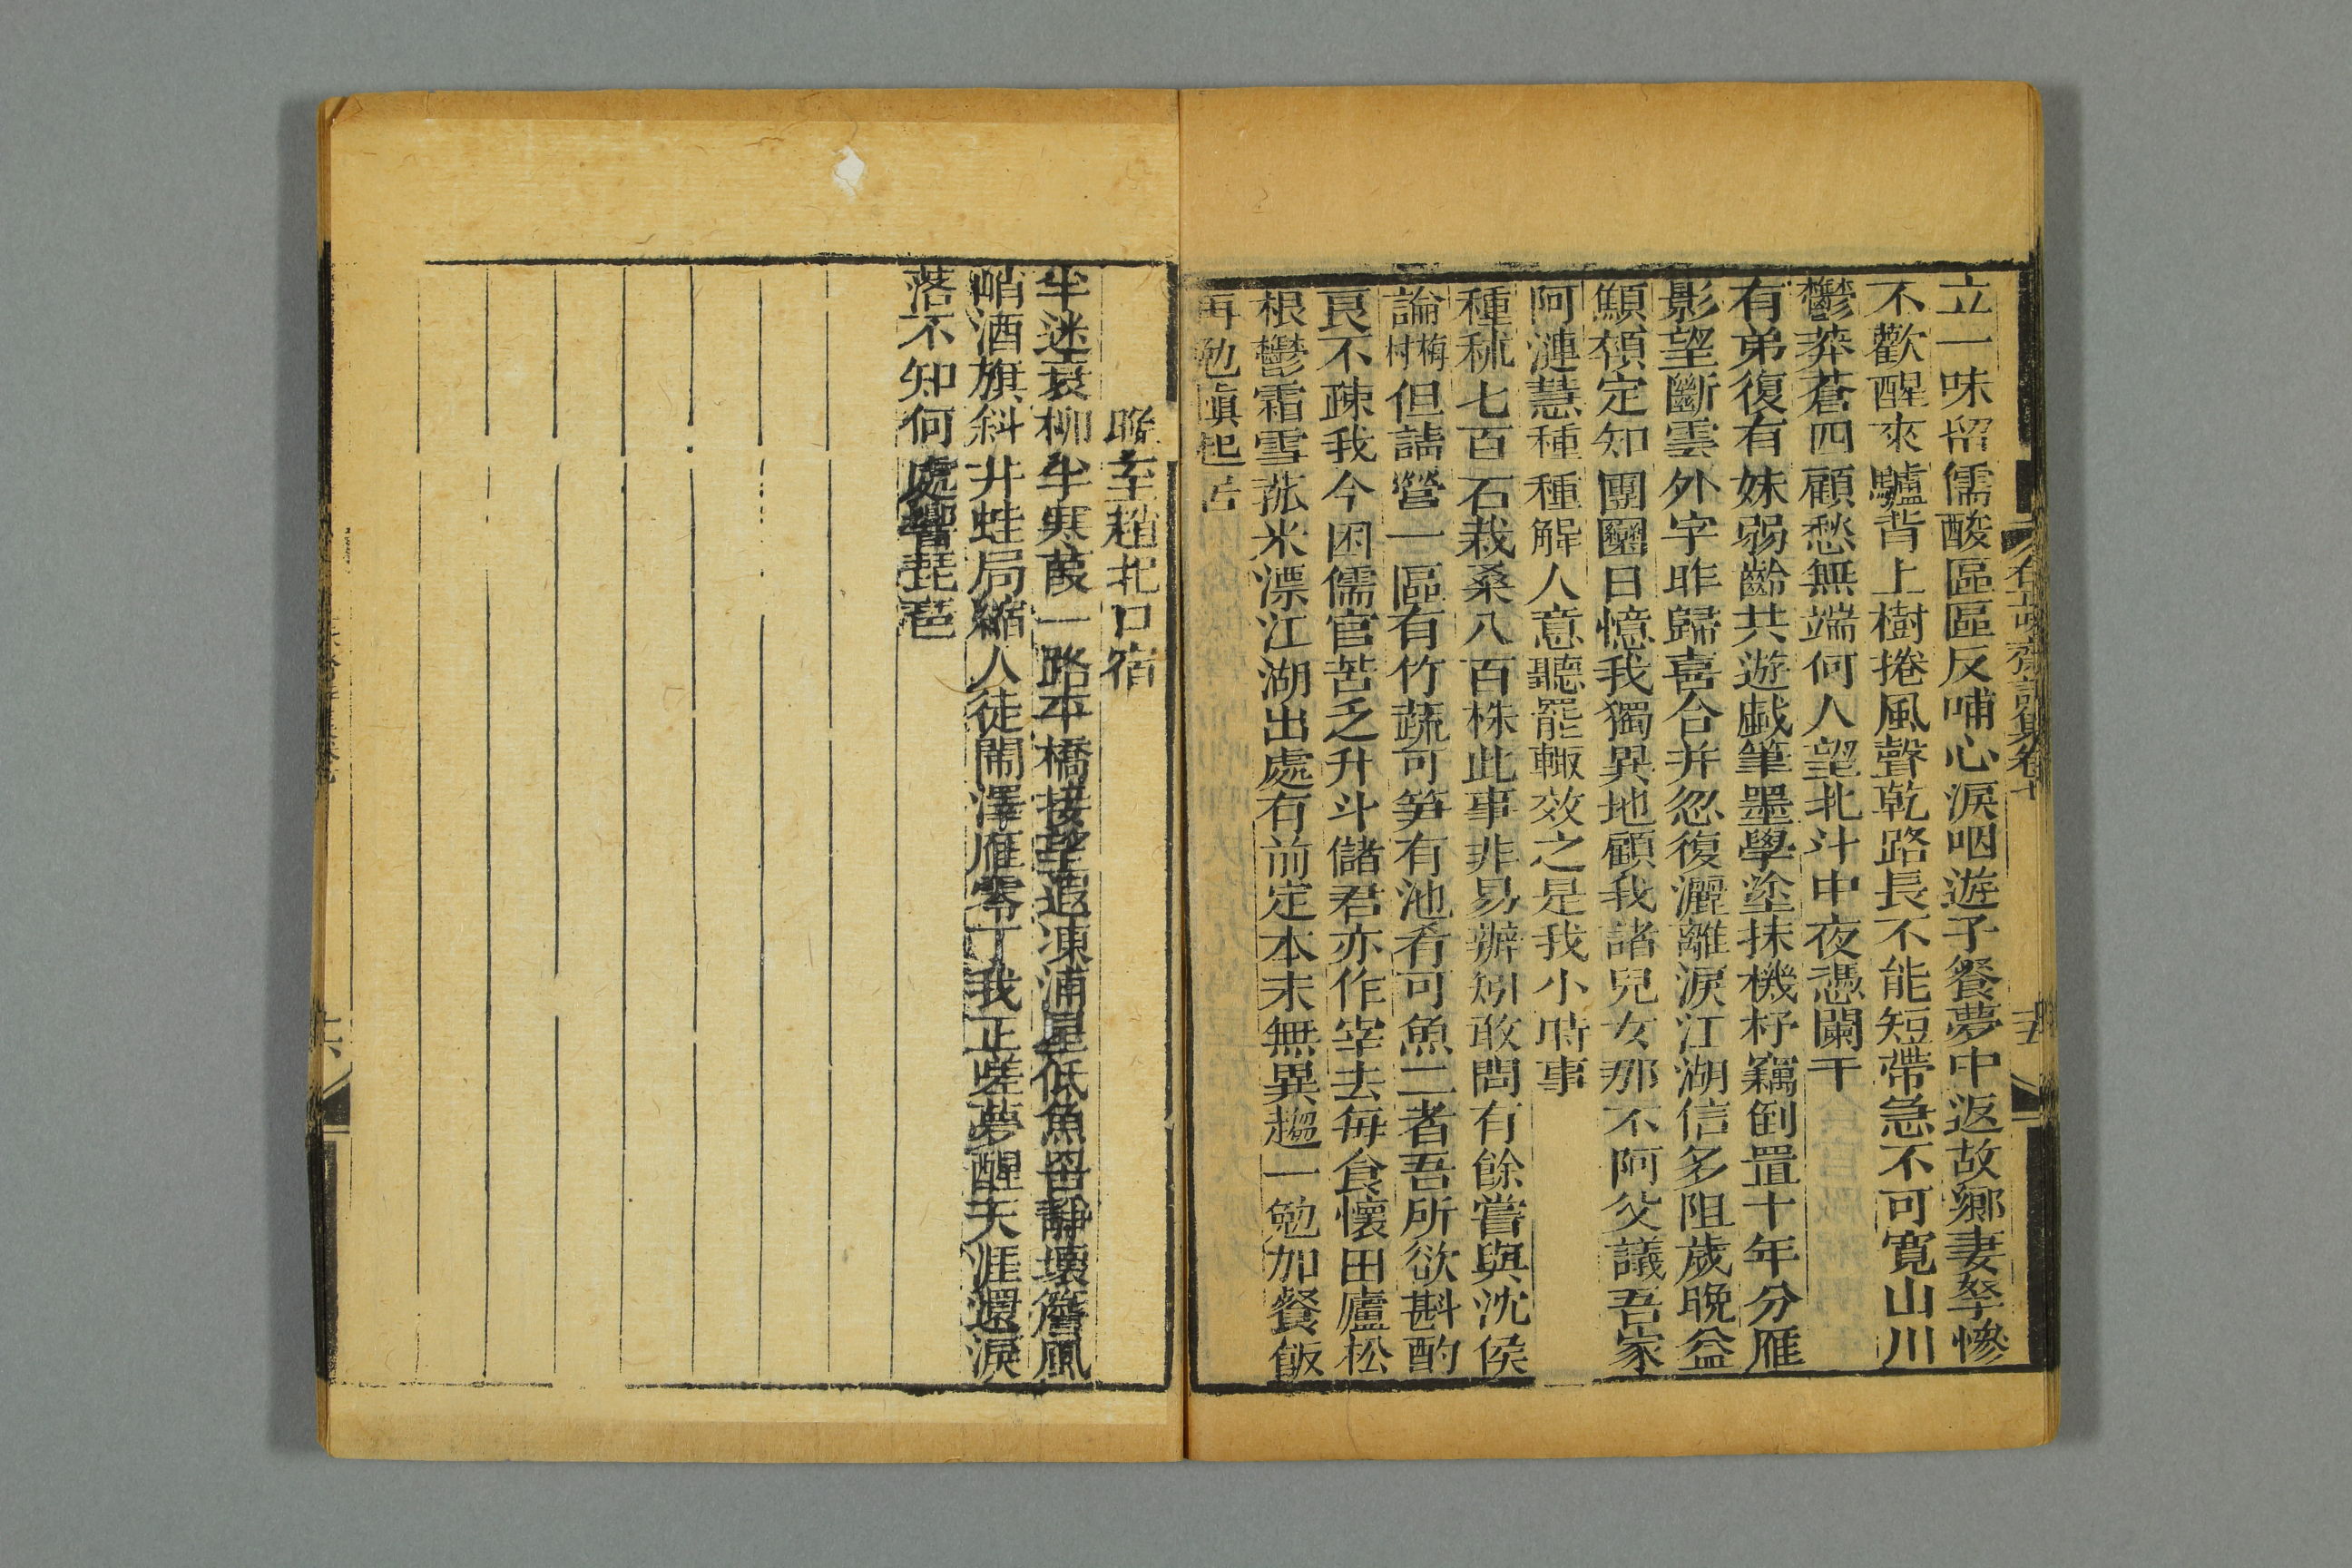 立一味留儒酸區區反哺心淚咽遊子餐夢中返故鄉妻孥慘
不歡醒來驢背上樹捲風聲乾路長不能短帶急不可寬山川
鬱莽蒼四顧愁無端何人望北斗中夜憑闌干
有弟復有妹弱齡共遊戲筆墨學塗抹機杼竊倒置十年分雁
影望斷雲外字昨歸喜合并忽復灑離淚江湖信多阻歲晚益
顦顇定知團圞日憶我獨異地顧我諸兒女那不阿父議吾家
阿漣慧種種解人意聽罷輒效之是我小時事
種秫七百石栽桑八百株此事非易辦矧敢問有餘嘗與沈侯
論梅村但請營一區有竹蔬可筍有池肴可魚二者吾所欲斟酌
良不疎我今困儒官苦乏升斗儲君亦作宰去每食懷田廬松
根鬱霜雪菰米漂江湖出處有前定本末無異趨一勉加餐飯
再勉慎起居
詩集卷十
十五
晚至趙北口宿
半迷衰柳半寒葭一路平橋接望遐凍浦星低魚罟靜壞簷風
峭酒旗斜井蛙局縮人徒鬧澤雁零丁我正嗟夢醒天涯還淚
落不知何處響琵琶
十六